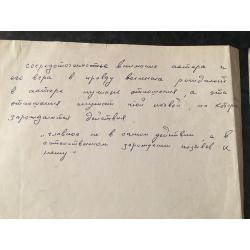 сосредоточенностье внимание актера и
его вера в правду вымысла рождают
в актере нужные отношения, а эти
отношения являются той почвой, на которой
зарождаются действия.
"главное не в самом действии, а в
естественном зарождении позывов к
нему"